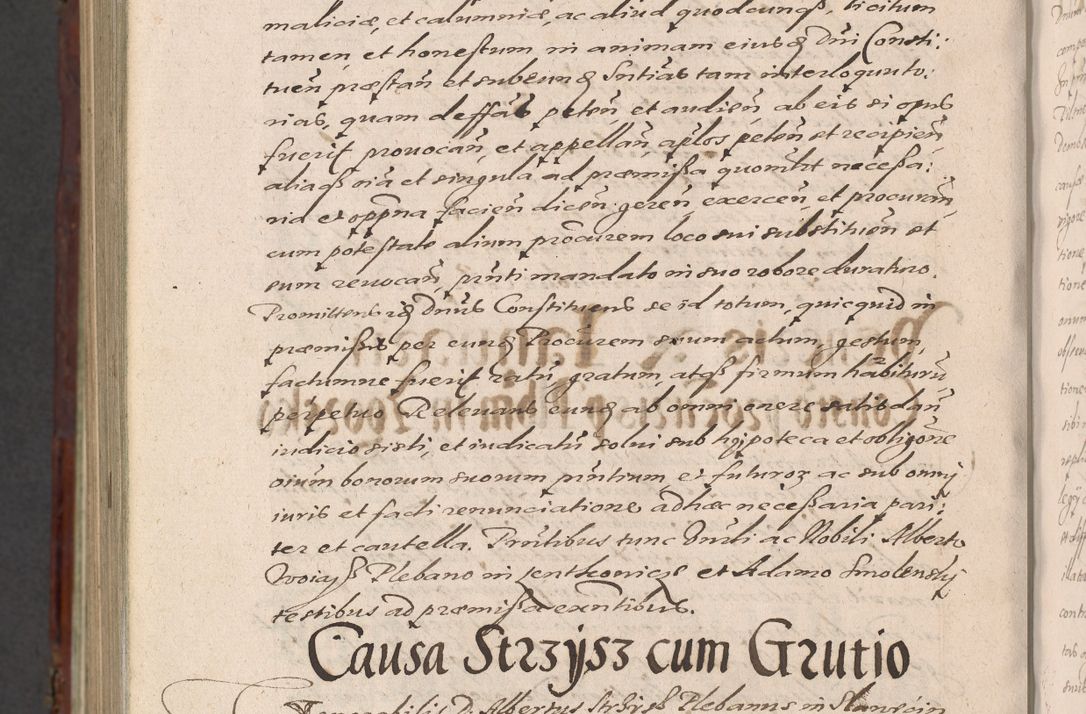 maliciæ, et calumniæ, ac aliud quodcunqȝ, licitum
tamen et honestum in animam eiusdē Dni Consti:
tuen̄ præstan̄ et subeund̄ Sntias tam interloquuto:
rias, quam deffās peten̄ et audien̄ ab eis si opus
fuerit prouocan̄, et appellan̄ aplos peten̄ et recipien̄
aliaqȝ oia et singula ad præmissa quomlt necessa:
ria et oppna facien̄ dicen̄ geren̄ exercen̄, et procuran̄,
cum potestate alium procurem loco sui substituen̄ et
eum reuocan̄, pn̄ti mandato in suo robore duraturo.
Promittens idē Dnus Constituens se id totum, quicquid in
præmissis per eundē Procurem suum actum, gestum,
factumue fuerit ratū, gratum, atqȝ firmum habiturū
perpetuo Releuans eundē ab omni onere satisdan̄
iudicio sisti, et iudicatū solui sub hypoteca et obligōne
oium bonorum suorum pn̄tium, et futuroȝ ac sub omnj
iuris et facti renunciatione adhæc necessaria pari:
ter et cautella. Pn̄tibus tunc Hnrli ac Nobili Alberto
Woiass Plebano in Jentkowicze et Adamo Smolenskj
testibus ad præmissa exn̄tibus.
Causa Strzÿsz cum Grutio
Venerabilis D. Albertus Strzÿsz Plebanus in